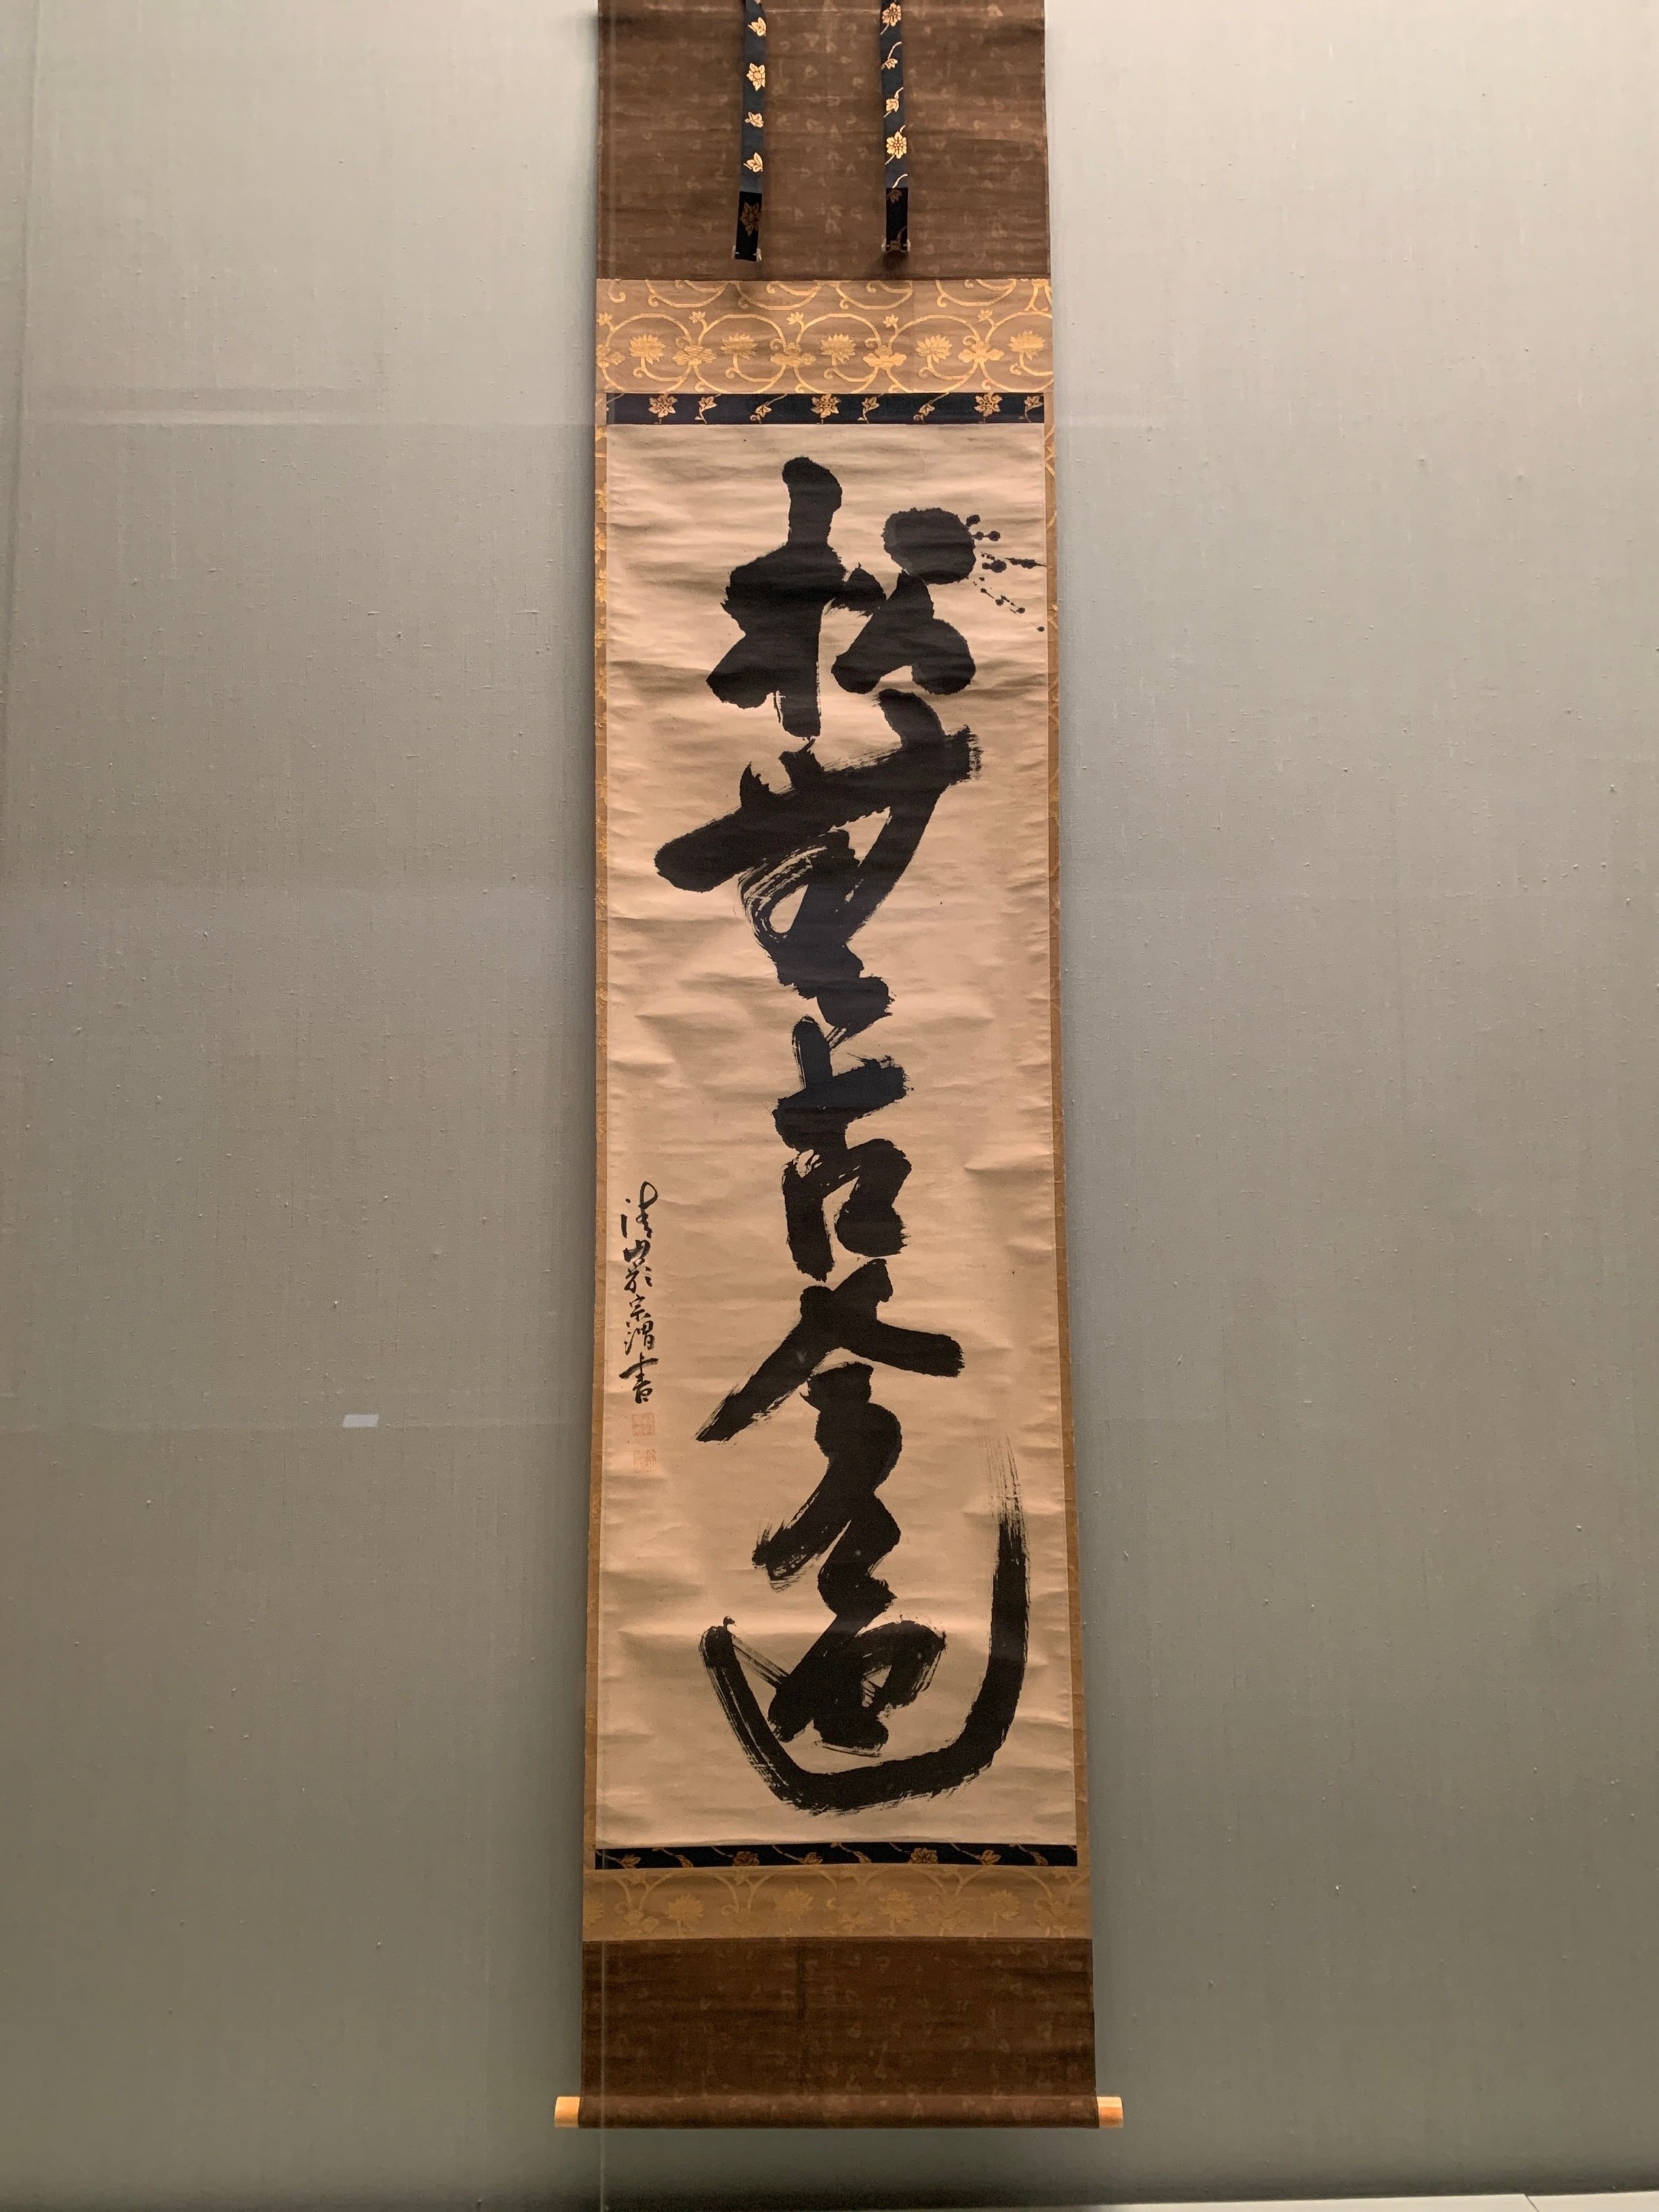 松無古今色
清巌宗渭書